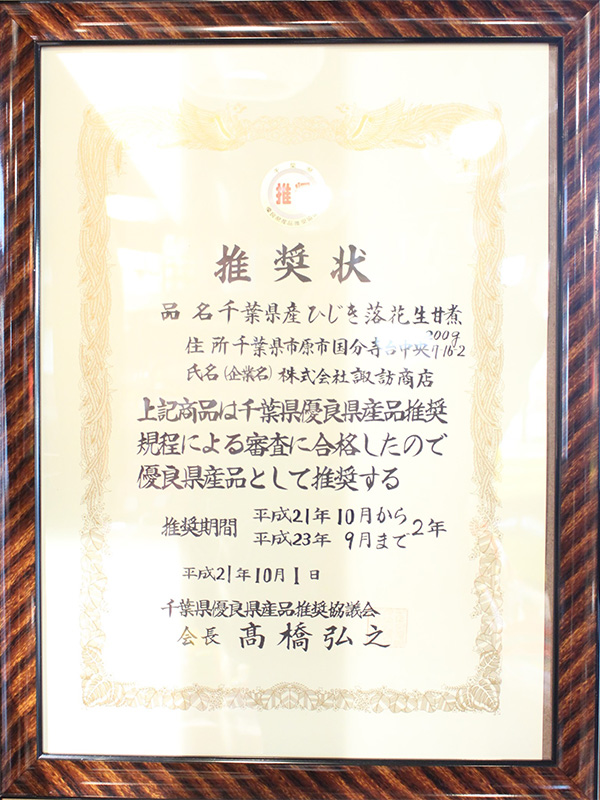 推
推奨状
品名 千葉県産ひじき落花生甘煮
200g
住所 千葉県市原市国分寺台中央7-16-2
氏名(企業名) 株式会社諏訪商店
上記商品は千葉県優良県産品推奨
規程による審査に合格したので
優良県産品として推奨する
推奨期間 平成21年10月から
平成23年 9月まで 2年
平成21年10月1日
千葉県優良県産品推奨協議会
会長 髙橋弘之